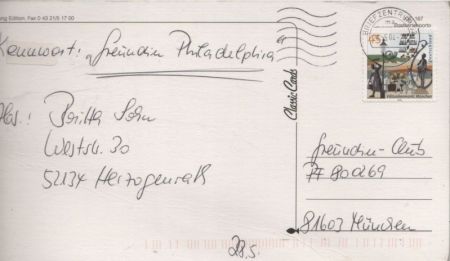 Edition. Fax 0 43 21/5 17 00
Kennwort: „freundin Philadelphia“
Abs.: Britta Sohn
Weststr. 30
52134 Herzogenrath
Classic Cards
BRIEFZENTRUM
freundin-Club
PF 800269
81603 München
28.5.